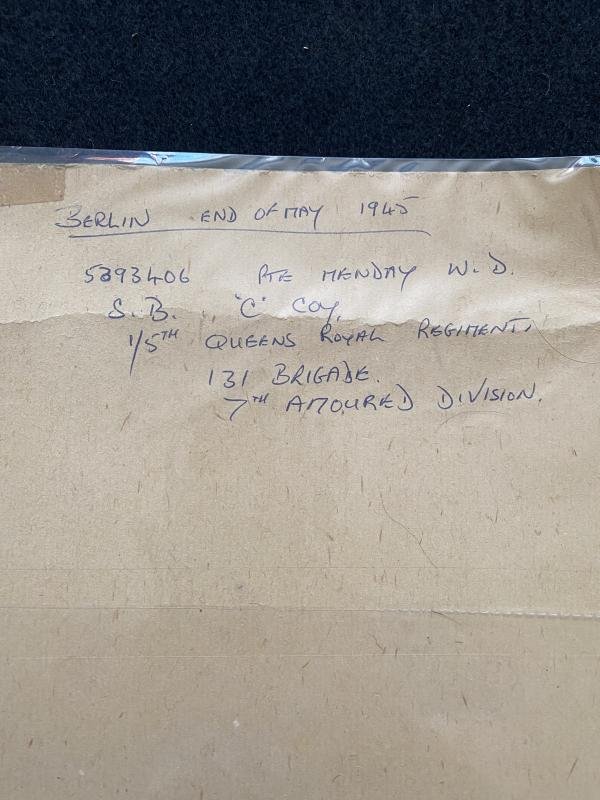 BERLIN END OF MAY 1945
5393406 PTE MENDAY W.D.
S.B. "C" COY.
1/5TH QUEENS ROYAL REGIMENT.
131 BRIGADE.
7TH AMOURED DIVISION.